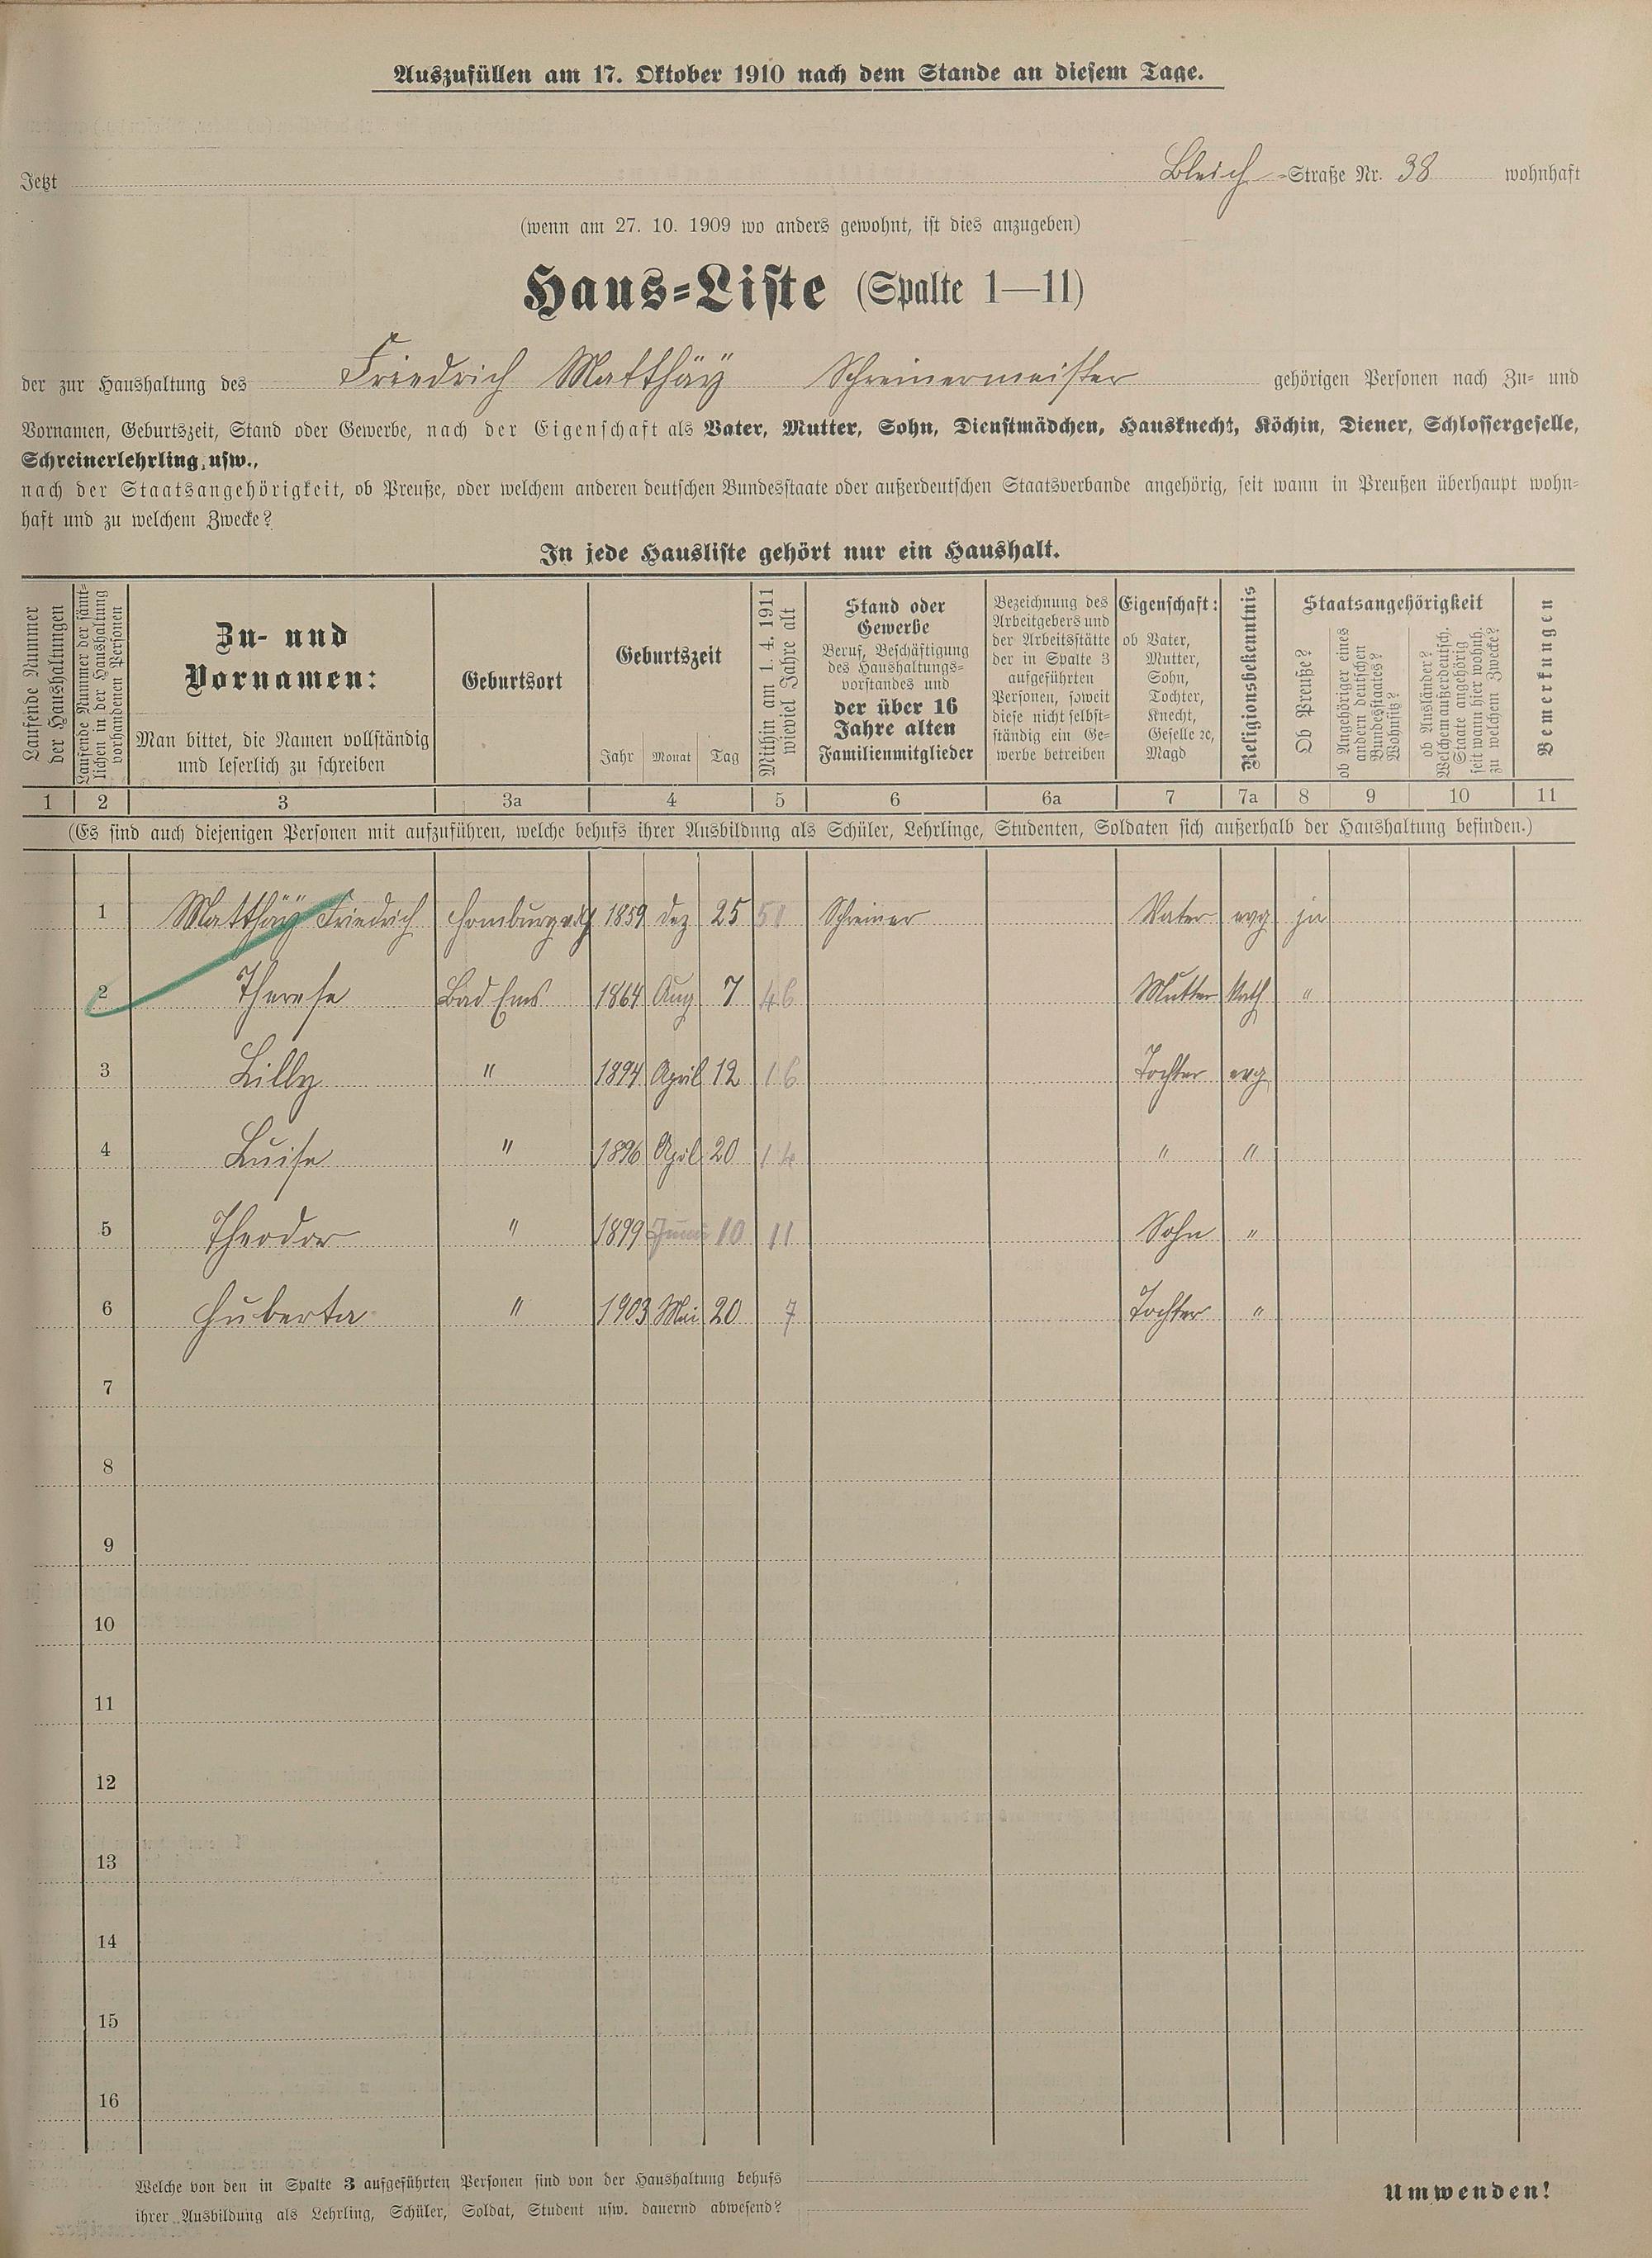 Auszufüllen am 17. Oktober 1910 nach dem Stande an diesem Tage.
Jetzt Bleich-Straße Nr. 38 wohnhaft
(wenn am 27. 10. 1909 wo anders gewohnt, ist dies anzugeben)
Haus-Liste (Spalte 1—11)
der zur Haushaltung des Friedrich Matthäÿ Schreinermeister gehörigen Personen nach Zu- und
Vornamen, Geburtszeit, Stand oder Gewerbe, nach der Eigenschaft als Vater, Mutter, Sohn, Dienstmädchen, Hausknecht, Köchin, Diener, Schlossergeselle,
Schreinerlehrling, usw.,
nach der Staatsangehörigkeit, ob Preuße, oder welchem anderen deutschen Bundesstaate oder außerdeutschen Staatsverbande angehörig, seit wann in Preußen überhaupt wohn-
haft und zu welchem Zwecke?
In jede Hausliste gehört nur ein Haushalt.
Laufende Nummer
der Haushaltungen
Laufende Nummer der sämt-
lichen in der Haushaltung
vorhandenen Personen
Zu- und
Vornamen:
Man bittet, die Namen vollständig
und leserlich zu schreiben
Geburtsort
Geburtszeit
Jahr Monat Tag
Mithin am 1. 4. 1911
wieviel Jahre alt
Stand oder
Gewerbe
Beruf, Beschäftigung
des Haushaltungs-
vorstandes und
der über 16
Jahre alten
Familienmitglieder
Bezeichnung des
Arbeitgebers und
der Arbeitsstätte
der in Spalte 3
aufgeführten
Personen, soweit
diese nicht selbst-
ständig ein Ge-
werbe betreiben
Eigenschaft:
ob Vater,
Mutter,
Sohn,
Tochter,
Knecht,
Geselle ec,
Magd
Religionsbekenntnis
Staatsangehörigkeit
Ob Preuße?
ob Angehöriger eines
andern deutschen
Bundesstaates?
Wohnsitz?
ob Ausländer?
Welchem außerdeutsch.
Staate angehörig
seit wann hier wohnh.
zu welchem Zwecke?
Bemerkungen
1 2 3 3a 4 5 6 6a 7 7a 8 9 10 11
(Es sind auch diejenigen Personen mit aufzuführen, welche behufs ihrer Ausbildung als Schüler, Lehrlinge, Studenten, Soldaten sich außerhalb der Haushaltung befinden.)
1 Matthäÿ Friedrich Homburg 1859 Dez 25 51 Schreiner Vater evg ja
2 Therese Bad Ems 1864 Aug 7 46 Mutter Kath "
3 Lilly " 1894 April 12 16 Tochter evg
4 Luise " 1896 April 20 14 " "
5 Theodor " 1899 Juni 10 11 Sohn "
6 Huberta " 1903 Mai 20 7 Tochter "
7
8
9
10
11
12
13
14
15
16
Welche von den in Spalte 3 aufgeführten Personen sind von der Haushaltung behufs
ihrer Ausbildung als Lehrling, Schüler, Soldat, Student usw. dauernd abwesend?
Umwenden!